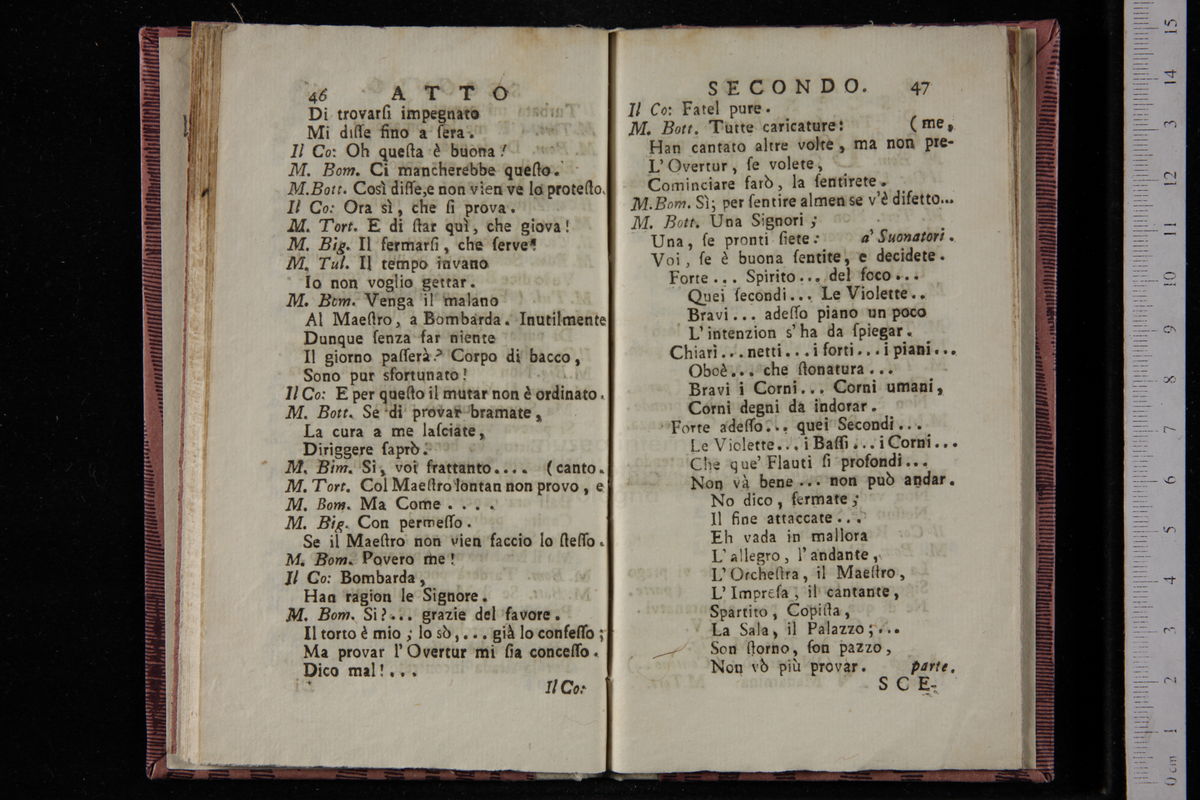 46 ATTO
Di trovarſi impegnato
Mi diſſe fino a ſera.
Il Co: Oh queſta è buona!
M. Bom. Ci mancherebbe queſto.
M. Bott. Così diſſe, e non vien ve lo proteſto.
Il Co: Ora sì, che ſi prova.
M. Tort. E di ſtar quì, che giova!
M. Big. Il fermarſi, che ſerve?
M. Tul. Il tempo invano
Io non voglio gettar.
M. Bom. Venga il malano
Al Maeſtro, a Bombarda. Inutilmente
Dunque ſenza far niente
Il giorno paſſerà? Corpo di bacco,
Sono pur sfortunato!
Il Co: E per queſto il mutar non è ordinato.
M. Bott. Se di provar bramate,
La cura a me laſciate,
Diriggere ſaprò.
M. Bim. Si, voi frattanto.... (canto.
M. Tort. Col Maeſtro lontan non provo, e
M. Bom. Ma Come ....
M. Big. Con permeſſo.
Se il Maeſtro non vien faccio lo ſteſſo.
M. Bom. Povero me!
Il Co: Bombarda,
Han ragion le Signore.
M. Bom. Si?... grazie del favore.
Il torto è mio; lo sò,... già lo confeſſo;
Ma provar l'Overtur mi ſia conceſſo.
Dico mal!...
Il Co:
SECONDO. 47
Il Co: Fatel pure.
M. Bott. Tutte caricature! (me,
Han cantato altre volte, ma non pre-
L'Overtur, ſe volete,
Cominciare farò, la ſentirete.
M. Bom. Sì; per ſentire almen se v'è difetto...
M. Bott. Una Signori;
Una, ſe pronti ſiete: a' Suonatori.
Voi, ſe è buona ſentite, e decidete.
Forte... Spirito... del foco...
Quei ſecondi... Le Violette..
Bravi... adeſſo piano un poco
L'intenzion s'ha da ſpiegar.
Chiari... netti... i forti... i piani...
Oboè... che ſtonatura...
Bravi i Corni... Corni umani,
Corni degni da indorar.
Forte adeſſo... quei Secondi...
Le Violette... i Baſſi... i Corni...
Che que' Flauti ſi profondi...
Non và bene... non può andar.
No dico, fermate;
Il fine attaccate...
Eh vada in mallora
L'allegro, l'andante,
L'Orcheſtra, il Maeſtro,
L'Impreſa, il cantante,
Spartito, Copiſta,
La Sala, il Palazzo;...
Son ſtorno, ſon pazzo,
Non vò più provar. parte.
SCE-
0 cm 1 2 3 4 5 6 7 8 9 10 11 12 13 14 15